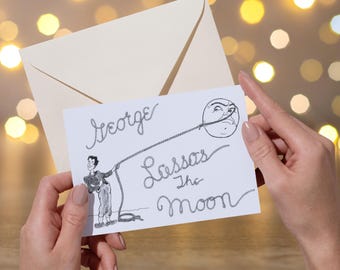 George
Lassos
The
Moon